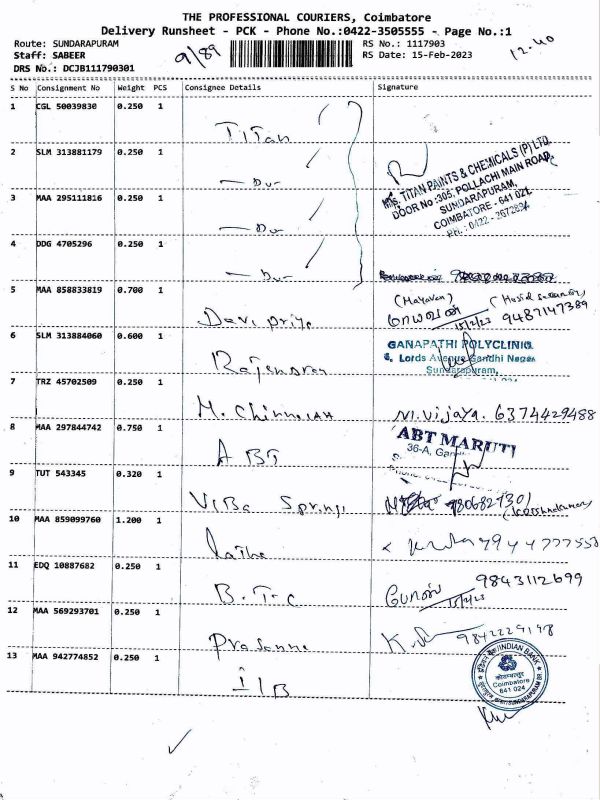 THE PROFESSIONAL COURIERS, Coimbatore
Delivery Runsheet - PCK - Phone No.:0422-3505555 - Page No.:1
Route: SUNDARAPURAM
RS No.: 1117903
12.40
Staff: SABEER
9/89
RS Date: 15-Feb-2023
DRS No.: DCJB111790301
S No Consignment No Weight PCS Consignee Details Signature
1 CGL 50039830 0.250 1 Titan
2 SLM 313881179 0.250 1 - Do -
M/s. TITAN PAINTS & CHEMICALS (P) LTD
DOOR No :305, POLLACHI MAIN ROAD,
SUNDARAPURAM,
COIMBATORE - 641 024.
PH : 0422 - 2672894
3 MAA 295111816 0.250 1 - Do -
4 DDG 4705296 0.250 1 - Do -
5 MAA 858833819 0.700 1 Devi priya
(Mayavan)
மாயவன்
15/2/23 9487147389
6 SLM 313884060 0.600 1 Rajendran
GANAPATHI POLYCLINIC
6, Lords Avenue Gandhi Nagar
Sundarapuram,
7 TRZ 45702509 0.250 1 M. Chinnaiah M.Vijaya. 6374429488
8 MAA 297844742 0.750 1 ABT
ABT MARUTI
36-A,
9 TUT 543345 0.320 1 ViBa Springs
10 MAA 859099760 1.200 1 Latha
11 EDQ 10887682 0.250 1 B.T.C
9843112699
15/2/23
12 MAA 569293701 0.250 1 Prasanna
13 MAA 942774852 0.250 1 IIB
INDIAN BANK
कोयम्बत्तूर
Coimbatore
641 024
SUNDARAPURAM BR.